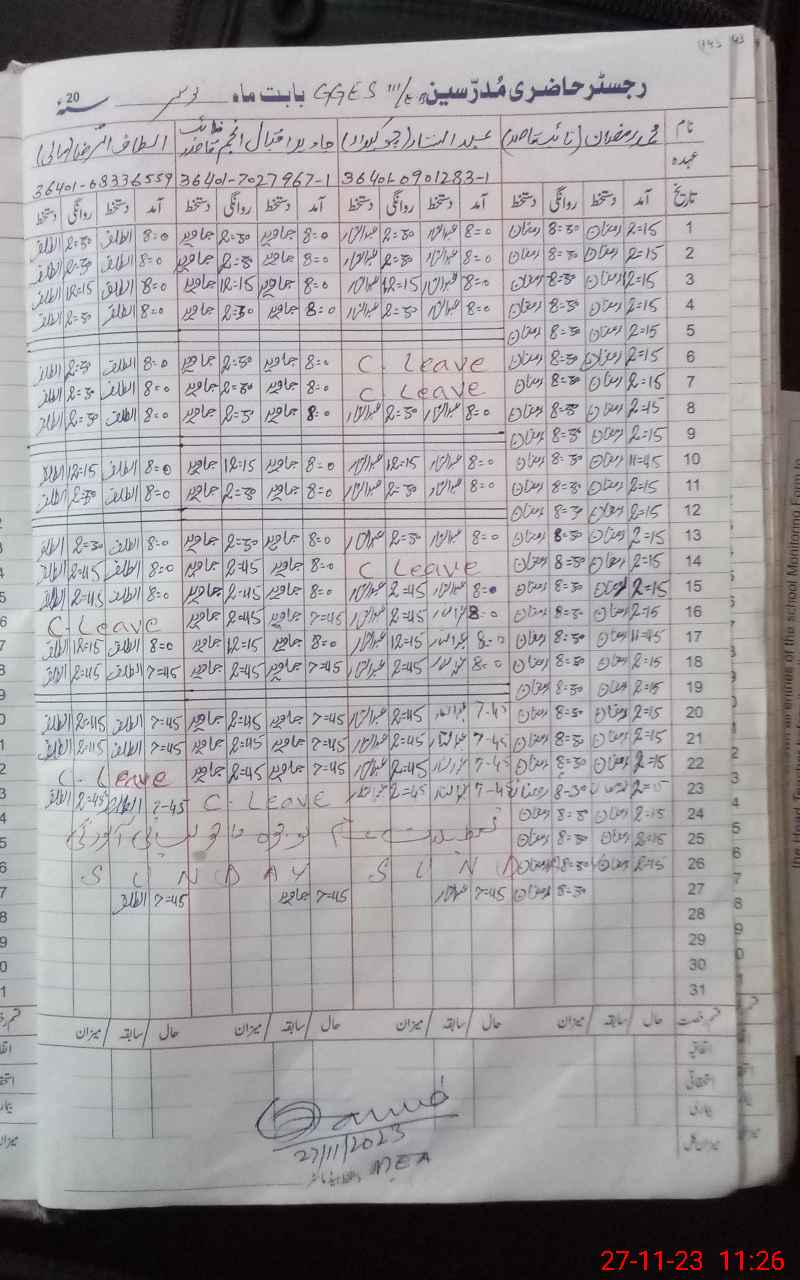 رجسٹر حاضری مُدرّسین GGES 111/EB بابت ماہ نومبر 20 سنہء
نام محمد رمضان (نائب قاصد) عبدالستار (چوکیدار) جاوید اقبال انجم نائب قاصد الطاف الرضا (مالی)
عہدہ
36401-0901283-1 36401-7027967-1 36401-08336559
تاریخ آمد دستخط روانگی دستخط آمد دستخط روانگی دستخط آمد دستخط روانگی دستخط آمد دستخط روانگی دستخط
1 2=15 رمضان 8=30 رمضان 8=0 عبدالستار 2=30 عبدالستار 8=0 جاوید 2=30 جاوید 8=0 الطاف 2=30 الطاف
2 2=15 رمضان 8=30 رمضان 8=0 عبدالستار 2=30 عبدالستار 8=0 جاوید 2=30 جاوید 8=0 الطاف 2=30 الطاف
3 2=15 رمضان 8=30 رمضان 8=0 عبدالستار 12=15 عبدالستار 8=0 جاوید 12=15 جاوید 8=0 الطاف 12=15 الطاف
4 2=15 رمضان 8=30 رمضان 8=0 عبدالستار 2=30 عبدالستار 8=0 جاوید 2=30 جاوید 8=0 الطاف 2=30 الطاف
5 2=15 رمضان 8=30 رمضان
6 2=15 رمضان 8=30 رمضان C. Leave 8=0 جاوید 2=30 جاوید 8=0 الطاف 2=30 الطاف
7 2=15 رمضان 8=30 رمضان C. Leave 8=0 جاوید 2=30 جاوید 8=0 الطاف 2=30 الطاف
8 2=15 رمضان 8=30 رمضان 8=0 عبدالستار 2=30 عبدالستار 8=0 جاوید 2=30 جاوید 8=0 الطاف 2=30 الطاف
9 2=15 رمضان 8=30 رمضان
10 11=45 رمضان 8=30 رمضان 8=0 عبدالستار 12=15 عبدالستار 8=0 جاوید 12=15 جاوید 8=0 الطاف 12=15 الطاف
11 2=15 رمضان 8=30 رمضان 8=0 عبدالستار 2=30 عبدالستار 8=0 جاوید 2=30 جاوید 8=0 الطاف 2=30 الطاف
12 2=15 رمضان 8=30 رمضان
13 2=15 رمضان 8=30 رمضان 8=0 عبدالستار 2=30 عبدالستار 8=0 جاوید 2=30 جاوید 8=0 الطاف 2=30 الطاف
14 2=15 رمضان 8=30 رمضان C Leave 8=0 جاوید 2=45 جاوید 8=0 الطاف 2=45 الطاف
15 2=15 رمضان 8=30 رمضان 8=0 عبدالستار 2=45 عبدالستار 8=0 جاوید 2=45 جاوید 8=0 الطاف 2=45 الطاف
16 2=15 رمضان 8=30 رمضان 8=0 عبدالستار 2=45 عبدالستار 7=45 جاوید 2=45 جاوید C. Leave
17 11=45 رمضان 8=30 رمضان 8=0 عبدالستار 12=15 عبدالستار 8=0 جاوید 12=15 جاوید 8=0 الطاف 12=15 الطاف
18 2=15 رمضان 8=30 رمضان 8=0 عبدالستار 2=45 عبدالستار 7=45 جاوید 2=45 جاوید 7=45 الطاف 2=45 الطاف
19 2=15 رمضان 8=30 رمضان
20 2=15 رمضان 8=30 رمضان 7-45 عبدالستار 2=45 عبدالستار 7=45 جاوید 2=45 جاوید 7=45 الطاف 2=45 الطاف
21 2=15 رمضان 8=30 رمضان 7-45 عبدالستار 2=45 عبدالستار 7=45 جاوید 2=45 جاوید 7=45 الطاف 2=45 الطاف
22 2=15 رمضان 8=30 رمضان 7-45 عبدالستار 2=45 عبدالستار 7=45 جاوید 2=45 جاوید C. Leave
23 2=15 رمضان 8=30 رمضان 7-45 عبدالستار 2=45 عبدالستار C. Leave 7-45 الطاف 2=45 الطاف
24 2=15 رمضان 8=30 رمضان
25 2=15 رمضان 8=30 رمضان
26 2=15 رمضان 8=30 رمضان S U N D S U N D A Y
27 8=30 رمضان 7=45 عبدالستار 7=45 جاوید 7=45 الطاف
28
29
30
31
قسم رخصت حال / سابقہ / میزان حال / سابقہ / میزان حال / سابقہ / میزان حال / سابقہ / میزان
اتفاقیہ
استحقاقی
بیماری
میزان کل
27/11/2023
MEA
27-11-23 11:26